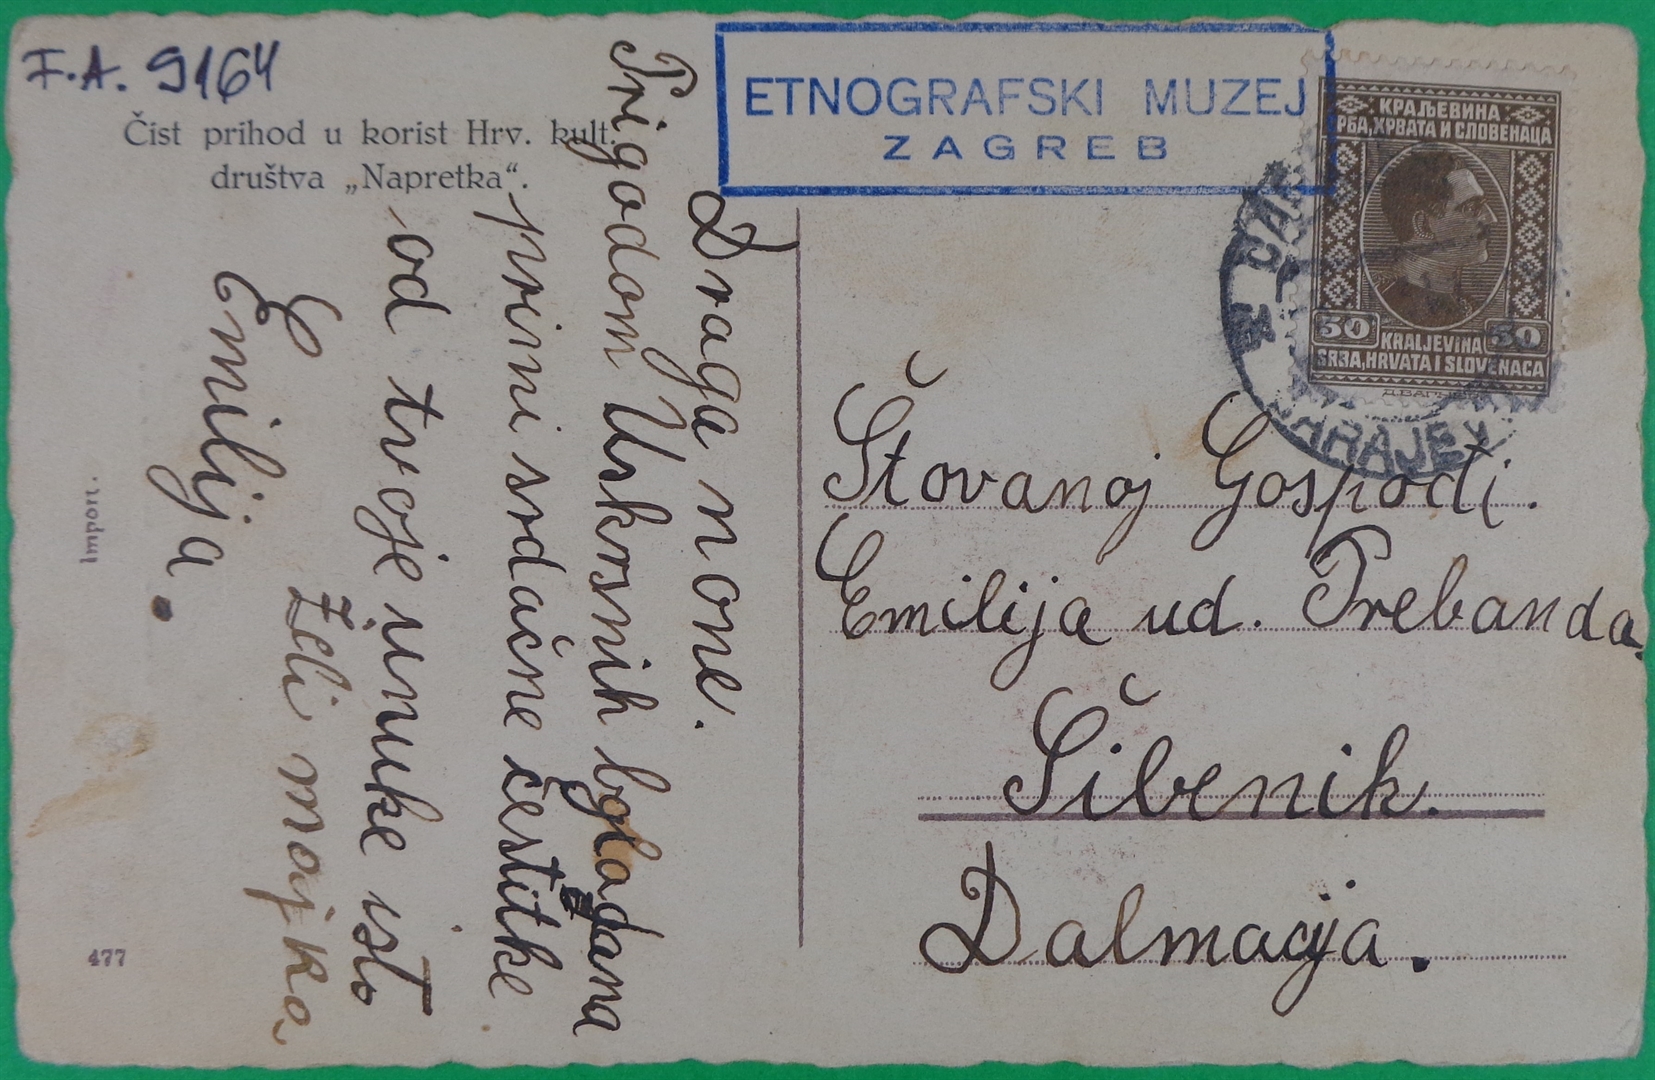 F.A. 9164
Čist prihod u korist Hrv. kult.
društva „Napretka“.
ETNOGRAFSKI MUZEJ
ZAGREB
КРАЉЕВИНА
СРБА, ХРВАТА И СЛОВЕНАЦА
50 50
KRALJEVINA
SRBA, HRVATA I SLOVENACA
SARAJEV
Draga none.
Prigodom Uskrsnih blagdana
primi srdačne čestitke
od tvoje unuke isto
želi majka
Emilija.
Štovanoj Gospodi.
Emilija ud. Prebanda.
Šibenik.
Dalmacija.
Import.
477